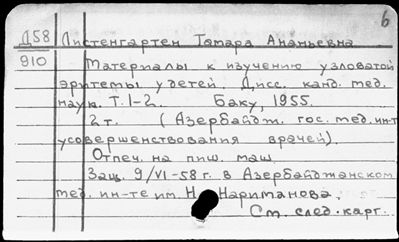 6
Д58 Листенгартен Тамара Ананьевна
910 Материалы к изучению узловатой
эритемы у детей. Дисс. канд. мед.
наук. Т.1-2. Баку, 1955.
2т. (Азербайдж. гос. мед. ин-т
усовершенствования врачей).
Отпеч. на пиш. маш.
Защ. 9/VI-58г. в Азербайджанском
мед. ин-те им. Н. Нариманова.
См. след. карт.